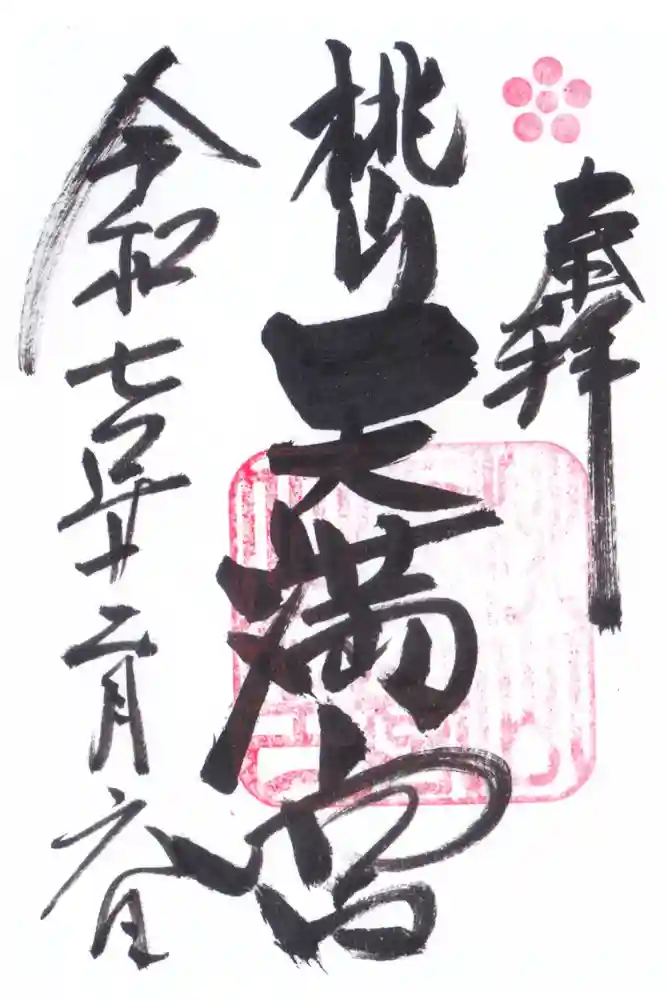 奉拝
桃山
天満宮
令和七年十二月六日